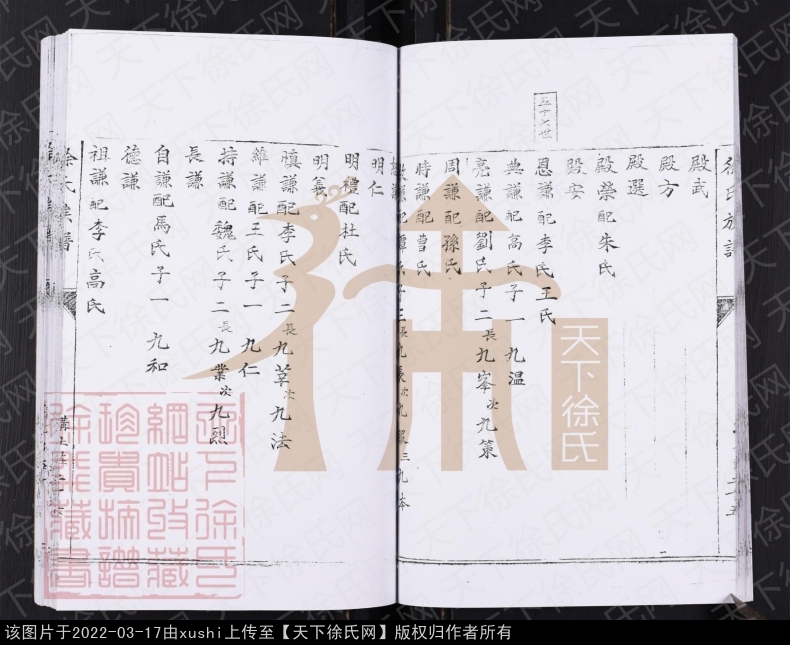 徐氏族譜
殿武
殿方
殿選
殿榮配朱氏
殿安
五十七世
恩謙配李氏王氏
典謙配高氏子一 九温
亮謙配劉氏子二長九峯次九策
周謙配孫氏
時謙配曹氏
謙配譚氏子三長九長次九
三九本
明仁
明禮配杜氏
明善
慎謙配李氏子二長九草次九法
維謙配王氏子一 九仁
持謙配魏氏子二長九業次九烈
長謙
自謙配馬氏子一 九和
德謙
祖謙配李氏高氏
徐氏族譜
天下徐氏
天下徐氏
網站收藏
珍貴族譜
徐氏藏書
天下徐氏网
该图片于2022-03-17由xushi上传至【天下徐氏网】版权归作者所有